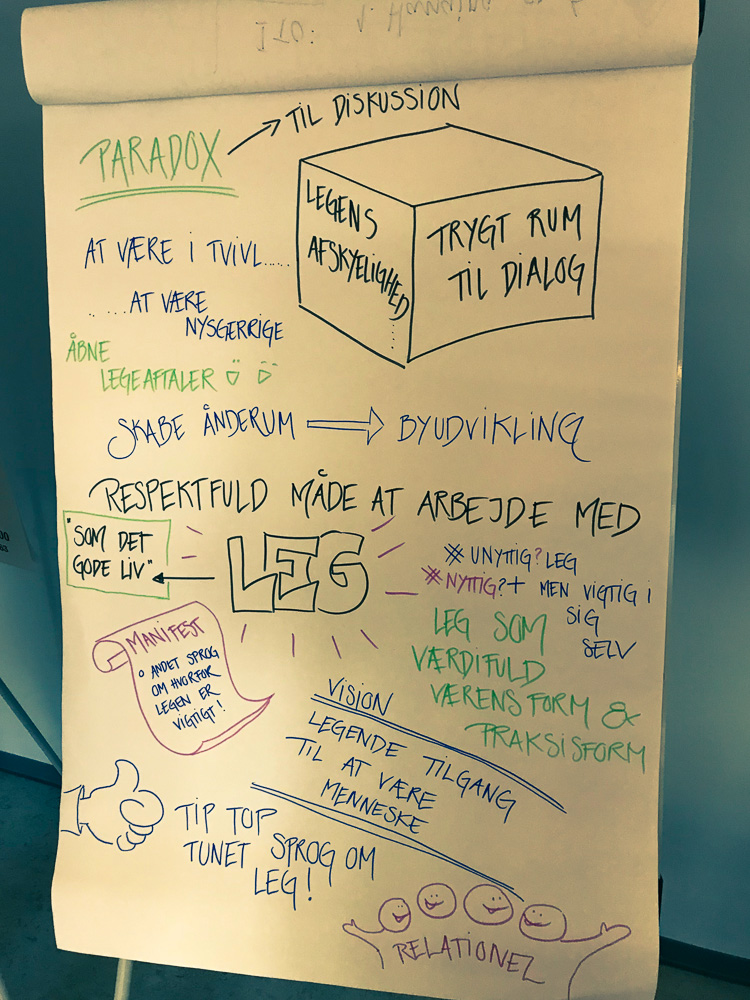 TIL DISKUSSION
PARADOX
LEGENS
AFSKYELIGHED
.....
TRYGT RUM
TIL DIALOG
AT VÆRE I TVIVL......
......AT VÆRE
NYSGERRIGE
ÅBNE
LEGEAFTALER
SKABE ÅNDERUM
BYUDVIKLING
RESPEKTFULD MÅDE AT ARBEJDE MED
LEG
"SOM DET
GODE LIV"
* UNYTTIG? LEG
* NYTTIG?+ MEN VIGTIG I
SIG
SELV
LEG SOM
VÆRDIFULD
VÆRENSFORM &
PRAKSISFORM
MANIFEST
o ANDET SPROG
OM HVORFOR
LEGEN ER
VIGTIGT!
VISION
LEGENDE TILGANG
TIL AT VÆRE
MENNESKE
TIP TOP
TUNET SPROG OM
LEG!
RELATIONER